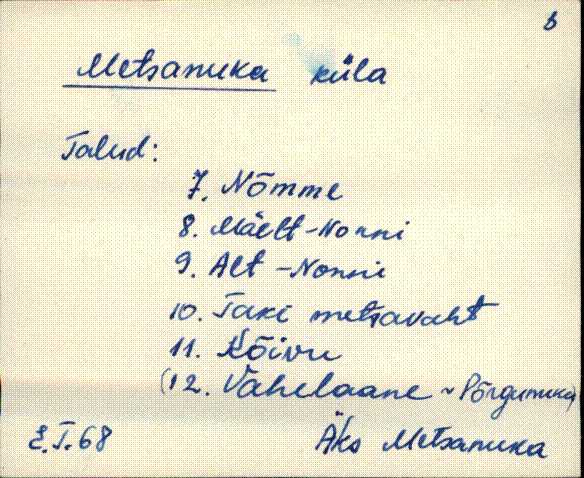 b
Metsanuka küla
Talud:
7. Nõmme
8. Mäelt-Nonni
9. Alt-Nonni
10. Taki metsavaht
11. Kõivu
(12. Vahelaane ~ Põrgunuka)
E.T.68 Äks Metsanuka